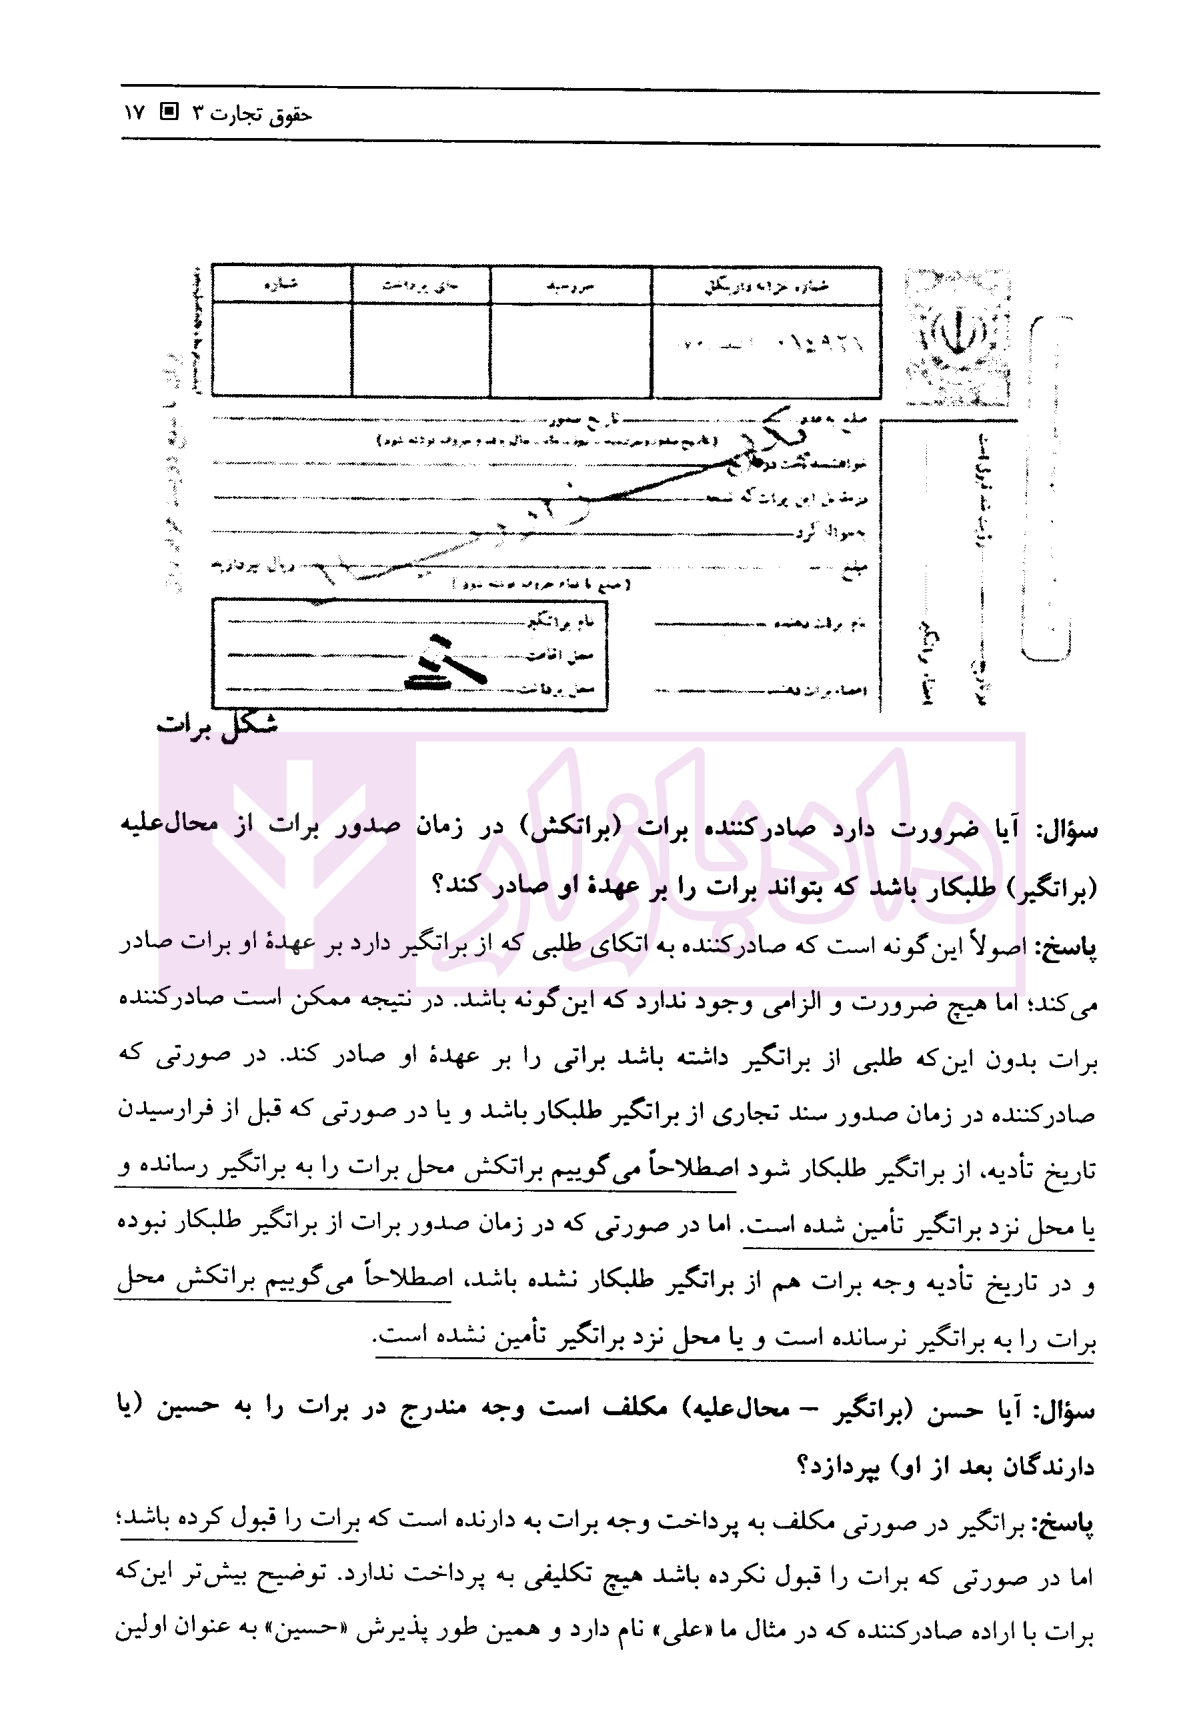 حقوق تجارت ۳ ۱۷
شماره خزانه داری کل سررسید جای پرداخت شماره
تاریخ صدور
در مقابل این برات که نسخه
به حواله کرد
مبلغ ریال بپردازید
(مبلغ با تمام حروف نوشته شود)
نام برات دهنده
امضاء برات دهنده
نام براتگیر
محل اقامت
محل پرداخت
رؤیت شد قبول است
در تاریخ
امضاء براتگیر
شکل برات
دادبازار
سؤال: آیا ضرورت دارد صادرکننده برات (براتکش) در زمان صدور برات از محال‌علیه
(براتگیر) طلبکار باشد که بتواند برات را بر عهدهٔ او صادر کند؟
پاسخ: اصولاً این‌گونه است که صادرکننده به اتکای طلبی که از براتگیر دارد بر عهدهٔ او برات صادر
می‌کند؛ اما هیچ ضرورت و الزامی وجود ندارد که این‌گونه باشد. در نتیجه ممکن است صادرکننده
برات بدون این‌که طلبی از براتگیر داشته باشد براتی را بر عهدهٔ او صادر کند. در صورتی که
صادرکننده در زمان صدور سند تجاری از براتگیر طلبکار باشد و یا در صورتی که قبل از فرارسیدن
تاریخ تأدیه، از براتگیر طلبکار شود اصطلاحاً می‌گوییم براتکش محل برات را به براتگیر رسانده و
یا محل نزد براتگیر تأمین شده است. اما در صورتی که در زمان صدور برات از براتگیر طلبکار نبوده
و در تاریخ تأدیه وجه برات هم از براتگیر طلبکار نشده باشد، اصطلاحاً می‌گوییم براتکش محل
برات را به براتگیر نرسانده است و یا محل نزد براتگیر تأمین نشده است.
سؤال: آیا حسن (براتگیر – محال‌علیه) مکلف است وجه مندرج در برات را به حسین (یا
دارندگان بعد از او) بپردازد؟
پاسخ: براتگیر در صورتی مکلف به پرداخت وجه برات به دارنده است که برات را قبول کرده باشد؛
اما در صورتی که برات را قبول نکرده باشد هیچ تکلیفی به پرداخت ندارد. توضیح بیش‌تر این‌که
برات با اراده صادرکننده که در مثال ما «علی» نام دارد و همین طور پذیرش «حسین» به عنوان اولین